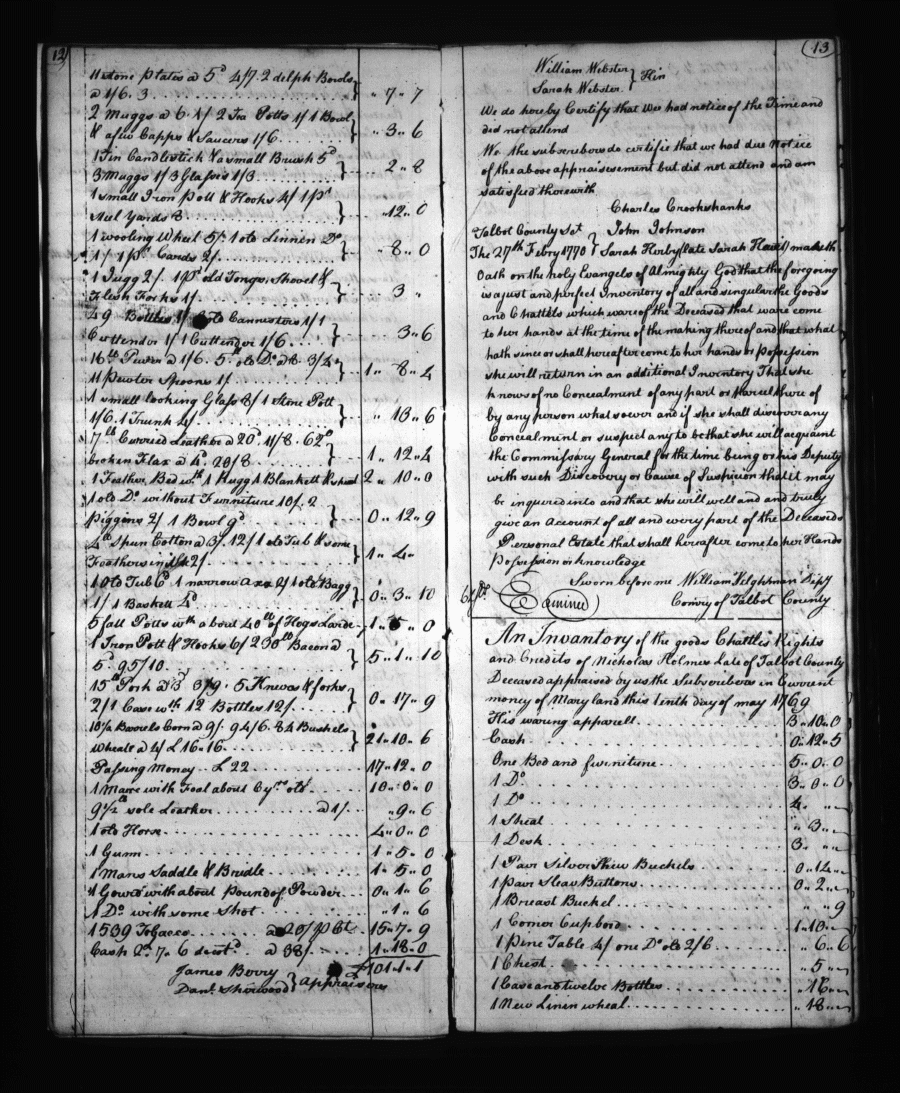 12
11 stone plates a 5d 4/7. 2 delph Bowls
a 1/6. 3 " 7 " 7
2 Muggs a 6. 1/ 2 Tea Potts 1/1 Bowl
& a few Cupps & Saucers 1/6 " 3 " 6
1 Tin Candlestick & a small Brush 5d
3 Muggs 1/3 Glasses 1/3 2 " 8
1 small Iron Pott & Hooks 4/ 1 pr
Steel Yards 8 " 12 " 0
1 wooling Wheel 5/. 1 old Linnen Do
1/ 1 pr Cards 2/ " 8 " 0
1 Jugg 2/. 1 pr old Tongs, Shovel &
Flesh Forks 1/ 3 "
49 Bottles 1/ old Cannisters 1/1
1/1 1/6 3 " 6
16 lb Pewter a 1/6. 5 lb old Do a 8 3/4
11 pewter Spoons 1/ 1 " 8 " 4
1 small looking Glass 8/ 1 Stone Pott
1/6. 1 Trunk 4/ " 13 " 6
7 lb Curried Leather a 20d. 11/8. 62 lb
broken Flax a 4d. 20/8 1 " 12 " 4
1 Feather Bed wth. 1 Rugg 1 Blankett & stead 2 " 10 " 0
1 old Do without Furniture 10/. 2
piggins 2/ 1 Bowl 9d 0 " 12 " 9
4 lb Spun Cotton a 3/. 12/ 1 old Tub & some
Feathers in it 2/ 1 " 4 "
1 old Tub 6d 1 narrow axe 2/ 1 old Bagg
1/ 1 Baskett 4d 0 " 3 " 10
5 fatt Potts wth about 40 lb of Hogs Larde 1 " 5 " 0
1 Iron Pott & Hooks 6/ 230 lb Bacon a
5d. 95/10 5 " 1 " 10
15 lb Pork a 3d 3/9. 5 Knives & forks
2/1 Case wth 12 Bottles 12/. 0 " 17 " 9
10½ Barrels Corn a 9/. 94/6. 84 Bushels
wheat a 4/ £16 " 16 21 " 10 " 6
Passing money £22 17 " 12 " 0
1 Mare with Foal about 6 yrs old 10 " 0 " 0
9½ lb sole Leather a 1/. " 9 " 6
1 old Horse 4 " 0 " 0
1 Gunn 1 " 5 " 0
1 Mans Saddle & Bridle 1 " 5 " 0
1 Gourd with about pound of Powder 0 " 1 " 6
1 Do with some Shot " 1 " 6
1539 Tobacco a 20/ p Ct 15 " 7 " 9
Cash a 38/ 1 " 18 " 0
£101 " 1 " 1
James Berry
Danl. Sherwood } Appraisers
13
William Webster
Sarah Webster } Kin
We do hereby Certify that we had notice of the Time and
did not attend
We the subscribers do certifie that we had due Notice
of the above appraisement but did not attend and am
satisfied therewith
Charles Crookshanks
Talbot County Sct John Johnson
The 27th Febry 1770 } Sarah Kerby (late Sarah ) maketh
Oath on the holy Evangels of Almighty God that the foregoing
is a just and perfect Inventory of all and singular the Goods
and Chattels which were of the Deceased that ware come
to her hands at the time of the making thereof and that what
hath since or shall hereafter come to her hands or Possession
she will return in an additional Inventory That she
knows of no Concealment of any part or parcel there of
by any person what sower and if she shall discover any
Concealment or suspect any to be that she will acquaint
the Commissary General for the time being or his Deputy
with such Discovery or Cause of Suspicion that it may
be inquired into and that she will well and and truly
give an Account of all and every part of the Deceaseds
Personal Estate that shall hereafter come to her Hands
Possession or knowledge
Sworn before me William Tilghman Depy
Examined Comry of Talbot County
An Inventory of the goods Chattles Rights
and Credits of Nicholas Holmes Late of Talbot County
Deceased appraised by us the Subscribers in Current
money of Maryland this tenth day of may 1769
His waring apparell 3 " 10 " 0
Cash 0 " 12 " 5
One Bed and furniture 5 " 0 " 0
1 Do 3 " 0 " 0
1 Do 4 " "
1 Sheat " 3 "
1 Desk 3 " "
1 Pair Silver Shew Buckels 0 " 12 "
1 pair Sleav Buttons 0 " 2 "
1 Breast Buckel " " 9
1 Corner Cupbord 1 " 10 "
1 pine Table 4/ one Do old 2/6 " 6 " 6
1 Chest " 5 "
1 Case and twelve Bottles " 16 "
1 New Linin wheal " 18 "